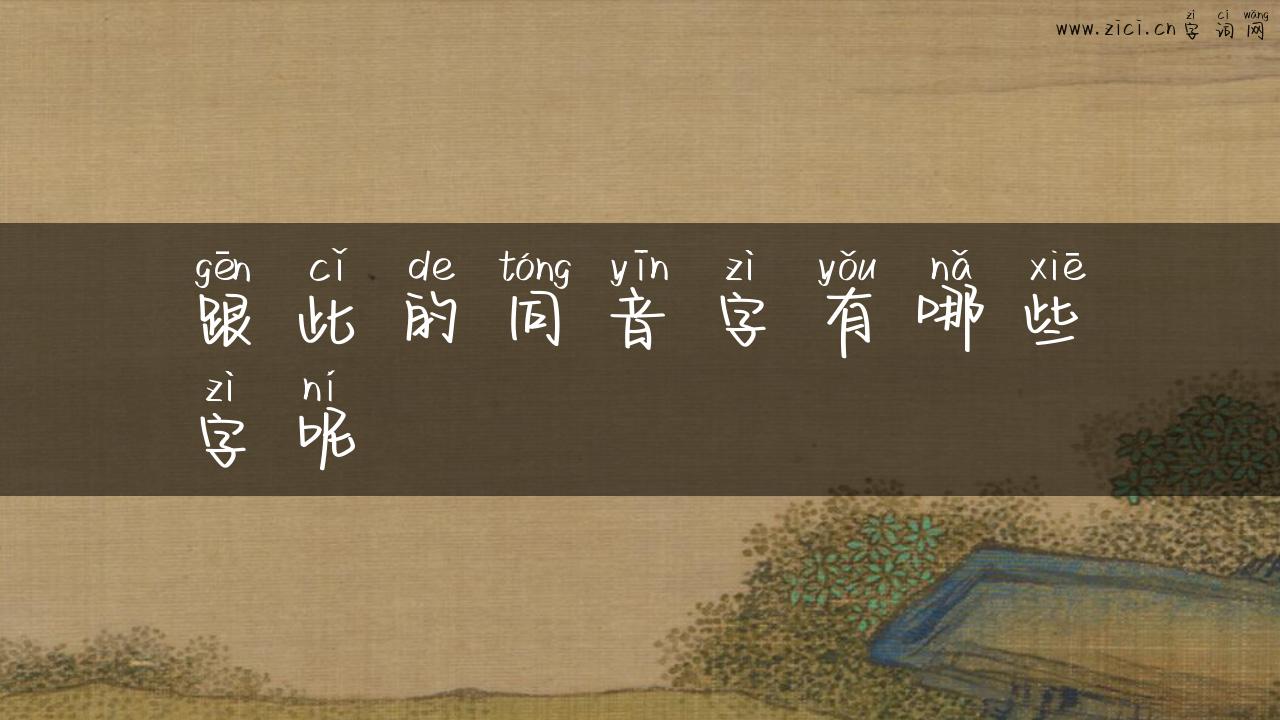 zì cí wǎng
www.zici.cn 字词网
gēn cǐ de tóng yīn zì yǒu nǎ xiē
跟此的同音字有哪些
zì ní
字呢